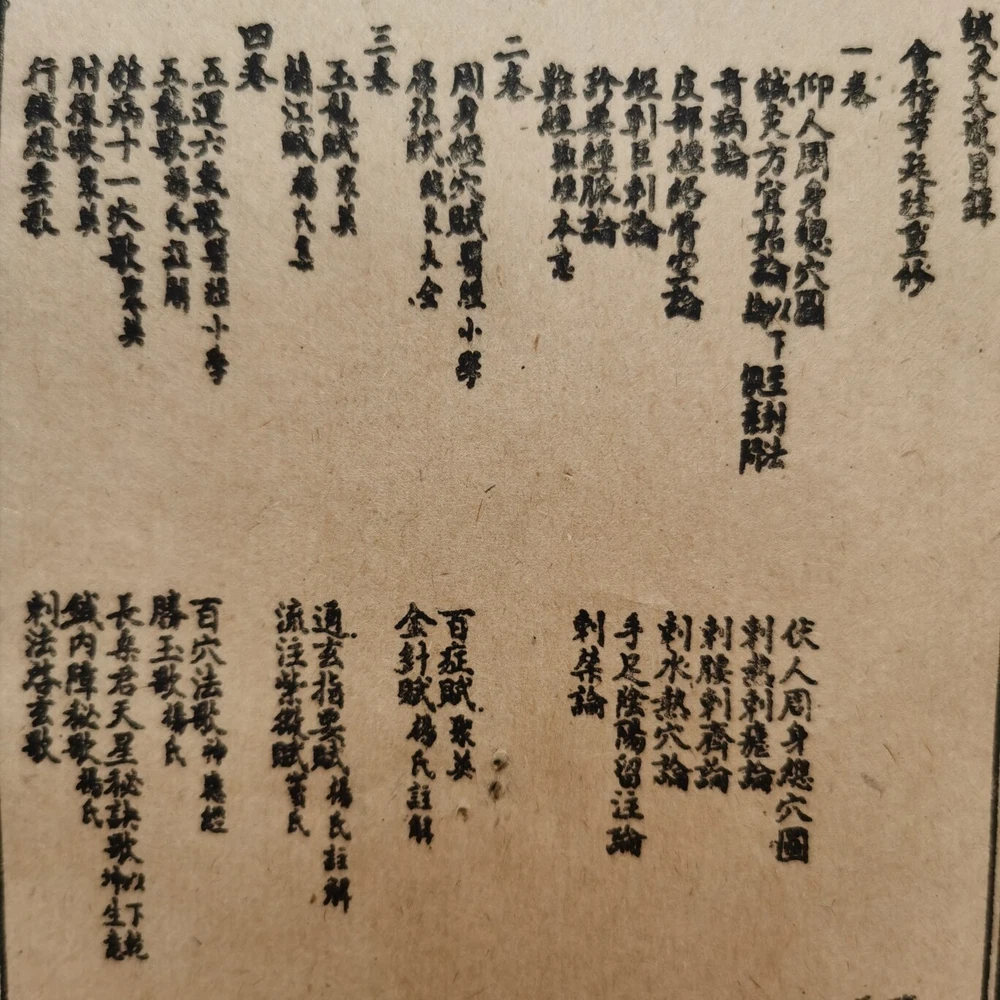 鍼灸大成目錄
會稽章廷珪重修
一卷
仰人周身總穴圖
伏人周身總穴圖
鍼灸方宜始論 以下至刺法論
刺熱刺瘧論
奇病論
刺腰刺齊論
皮部經絡骨空論
刺水熱穴論
繆刺巨刺論
手足陰陽留注論
診要經脈論
刺禁論
難經
二卷
周身經穴賦 醫經小學
百症賦 聚英
席弘賦 鍼灸大全
金針賦 楊氏註解
三卷
玉龍賦 聚英
通玄指要賦 楊氏註解
蘭江賦 楊氏集
流注紫微賦 竇氏
四卷
五運六氣歌 醫經小學
百穴法歌 神應經
五龍歌 楊氏註解
勝玉歌 楊氏
雜病十一穴歌 聚英
長桑君天星秘訣歌 以下乾坤生意
肘後歌 聚英
鍼內障秘歌 楊氏
行鍼總要歌
刺法啓玄歌